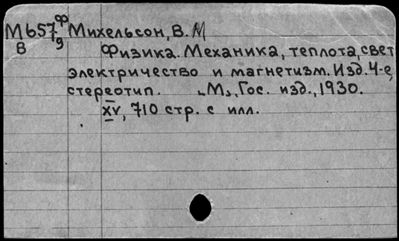 М657 ф Михельсон, В. М
В 9 Физика. Механика, теплота, свет
электричество и магнетизм. Изд. 4-е,
стереотип. „М., Гос. изд., 1930.
XV, 710 стр. с илл.